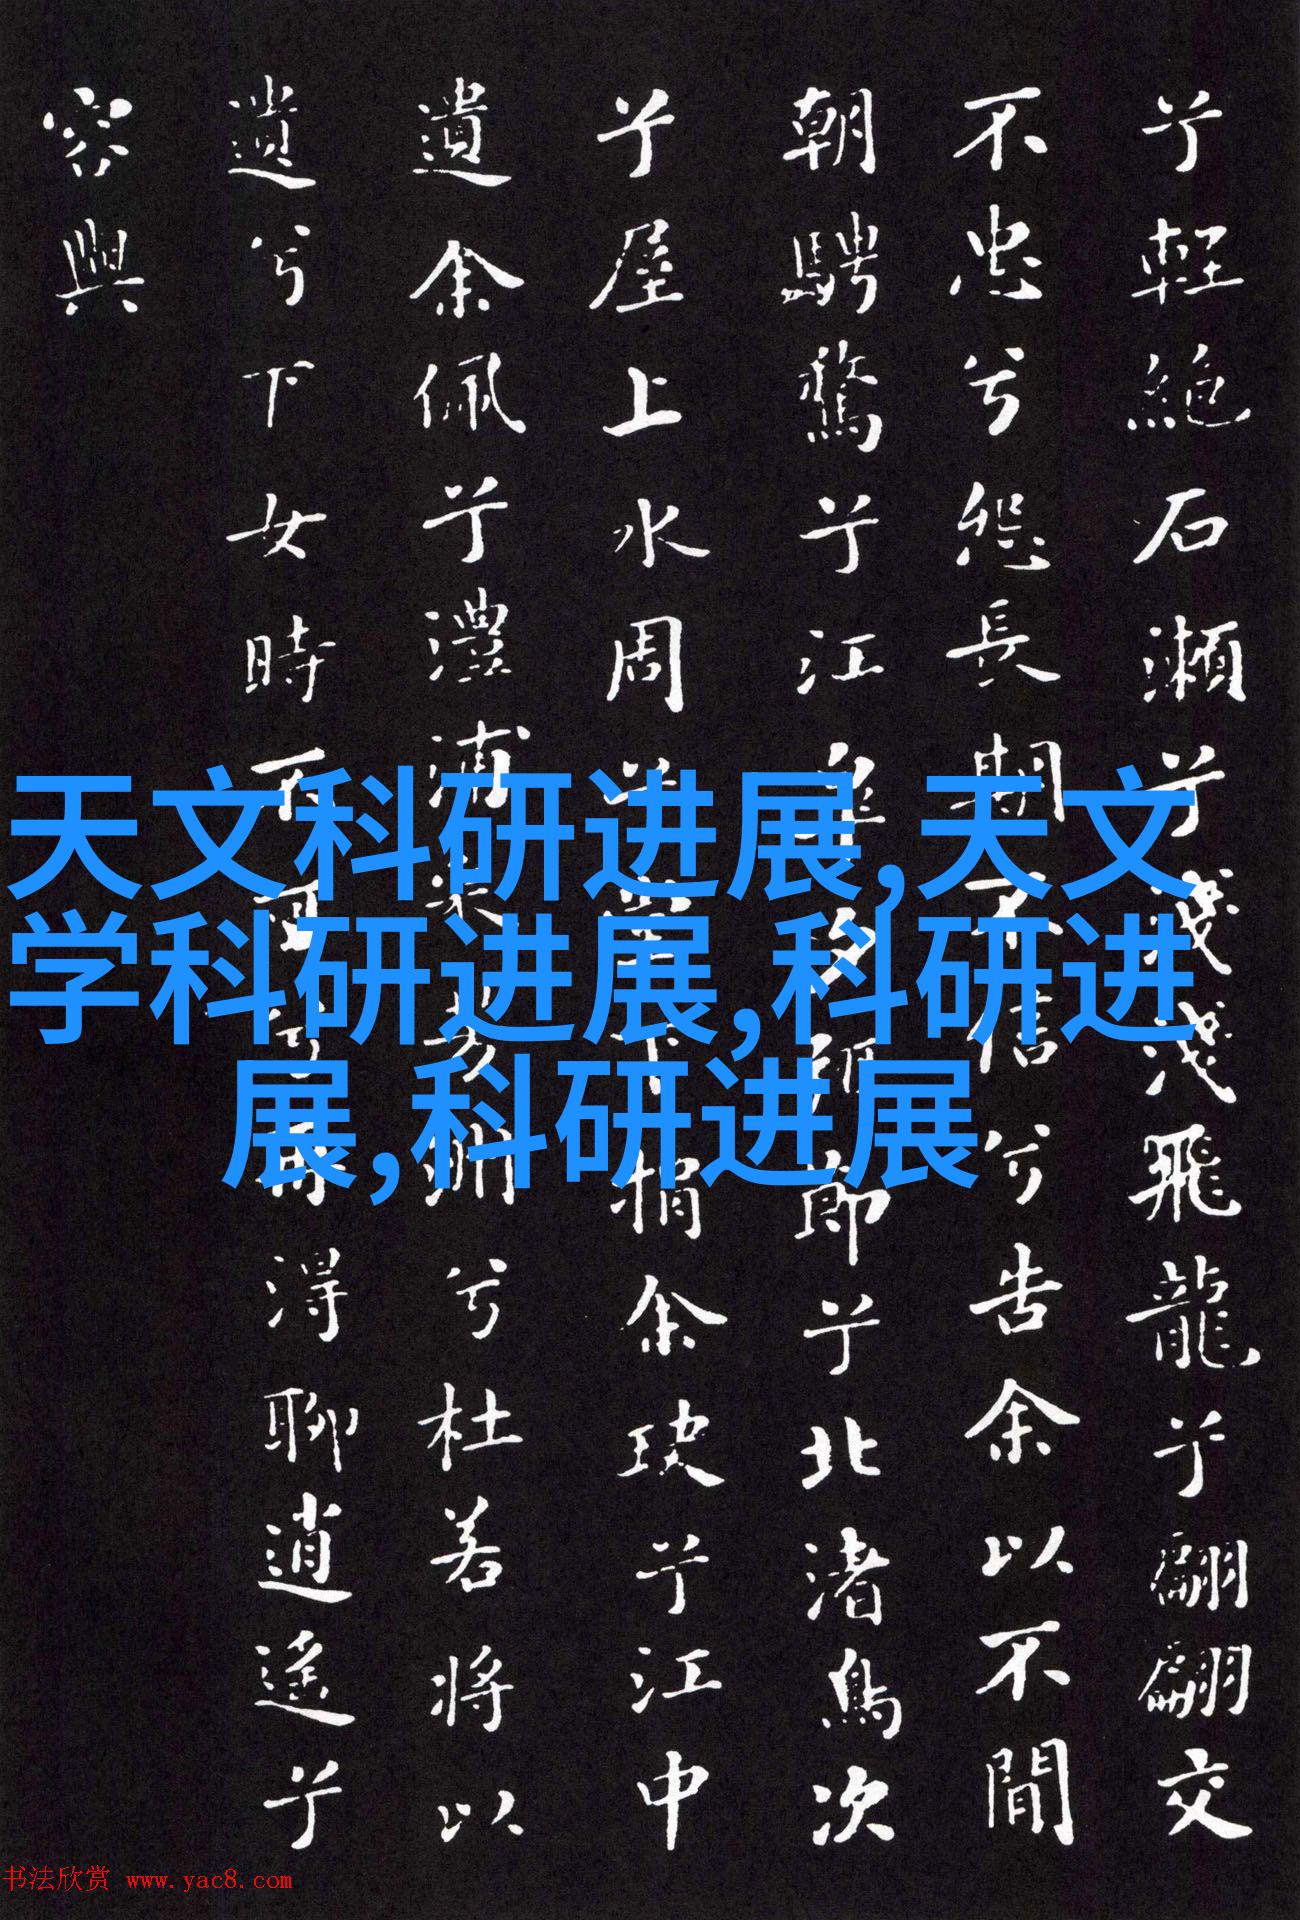 兮輕絕石瀨兮淺淺飛龍兮翩翩交
不忠兮怨長期不信兮告余以不間
朝騁騖兮江皋夕弭節兮北渚鳥次
兮屋上水周兮堂下捐余玦兮江中
遺余佩兮澧浦采芳洲兮杜若將以
遺兮下女時不可兮再得聊逍遙兮
容與
天文科研进展,天文
学科研进展,科研进
展,科研进展
书法欣赏 www.yac8.com